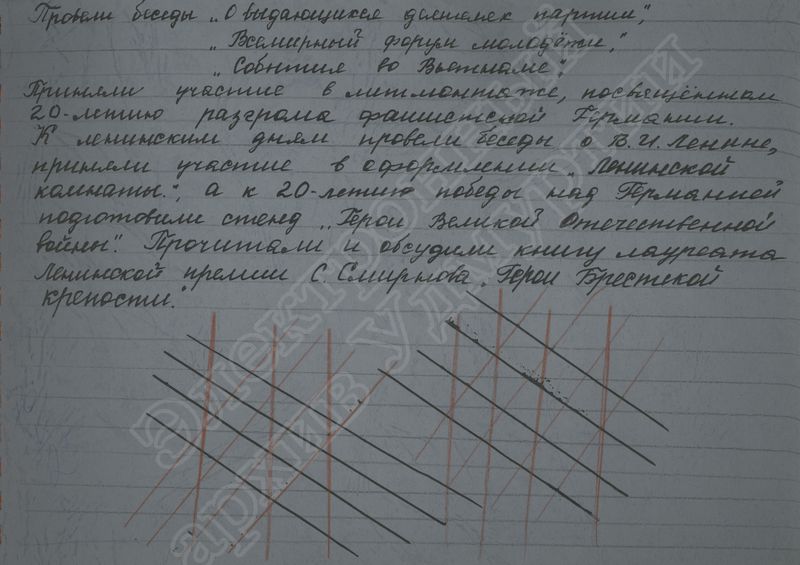 Провели беседы „О выдающихся деятелях партии",
„Всемирный форум молодёжи",
„События во Вьетнаме".
Приняли участие в литмонтаже, посвящённом
20-летию разгрома фашистской Германии.
К ленинским дням провели беседы о В.И. Ленине,
приняли участие в оформлении „Ленинской
комнаты.", а к 20-летию победы над Германией
подготовили стенд „Герои Великой Отечественной
войны". Прочитали и обсудили книгу лауреата
Ленинской премии С. Смирнова „Герои Брестской
крепости."
Электронный
архив Удмуртии